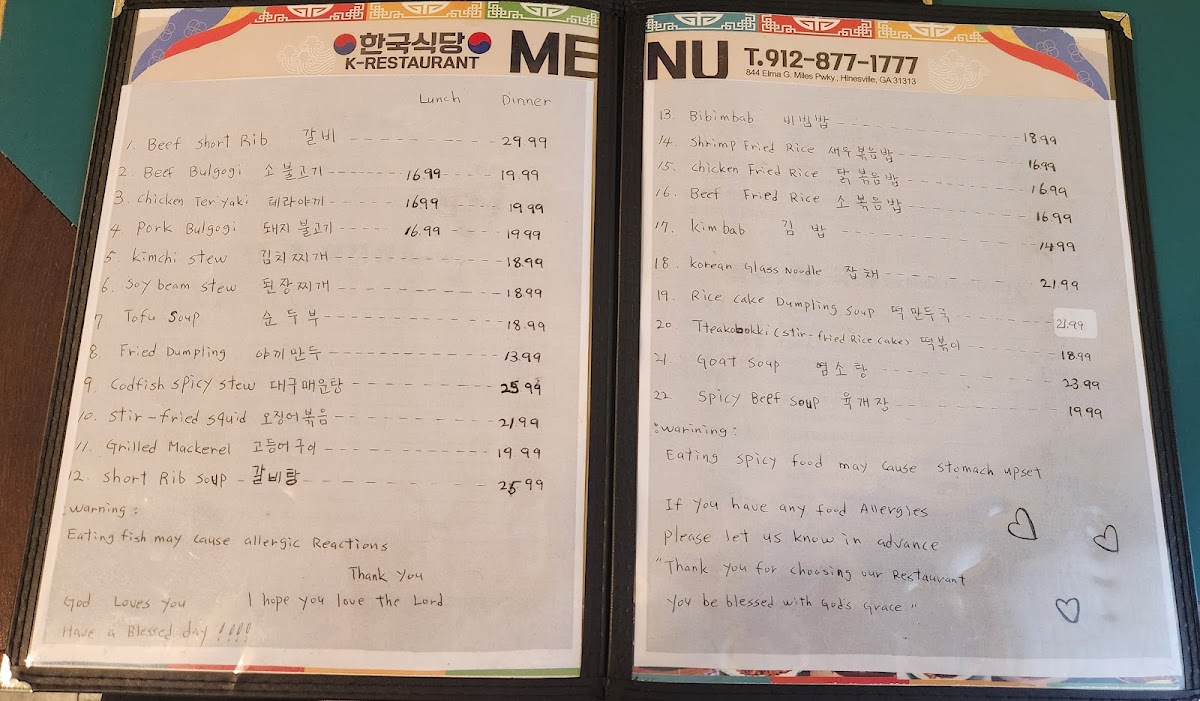 한국식당
K-RESTAURANT
MENU
T.912-877-1777
844 Elma G. Miles Pwky., Hinesville, GA 31313
Lunch Dinner
1. Beef short Rib 갈비 29.99
2. Beef Bulgogi 소불고기 16.99 19.99
3. chicken Teriyaki 테라야끼 16.99 19.99
4. Pork Bulgogi 돼지불고기 16.99 19.99
5. kimchi stew 김치찌개 18.99
6. Soy beam stew 된장찌개 18.99
7 Tofu Soup 순두부 18.99
8. Fried Dumpling 야끼만두 13.99
9. Codfish spicy stew 대구매운탕 25.99
10. stir-fried squid 오징어볶음 21.99
11. Grilled Mackerel 고등어구이 19.99
12. short Rib soup 갈비탕 25.99
:Warning:
Eating fish may cause allergic Reactions
Thank You
God Loves You I hope you love the Lord
Have a Blessed day !!!!
13. Bibimbab 비빔밥 18.99
14. Shrimp Fried Rice 새우볶음밥 16.99
15. chicken Fried Rice 닭볶음밥 16.99
16. Beef Fried Rice 소볶음밥 16.99
17. kimbab 김밥 14.99
18. korean Glass Noudle 잡채 21.99
19. Rice cake Dumpling soup 떡만두국 21.99
20. Tteakobokki (stir-fried Rice cake) 떡볶이 18.99
21. Goat soup 염소탕 23.99
22. Spicy Beef soup 육개장 19.99
:Warining:
Eating spicy food may cause stomach upset
If you have any food Allergies
please let us know in advance
"Thank you for choosing our Restaurant
You be blessed with God's Grace"